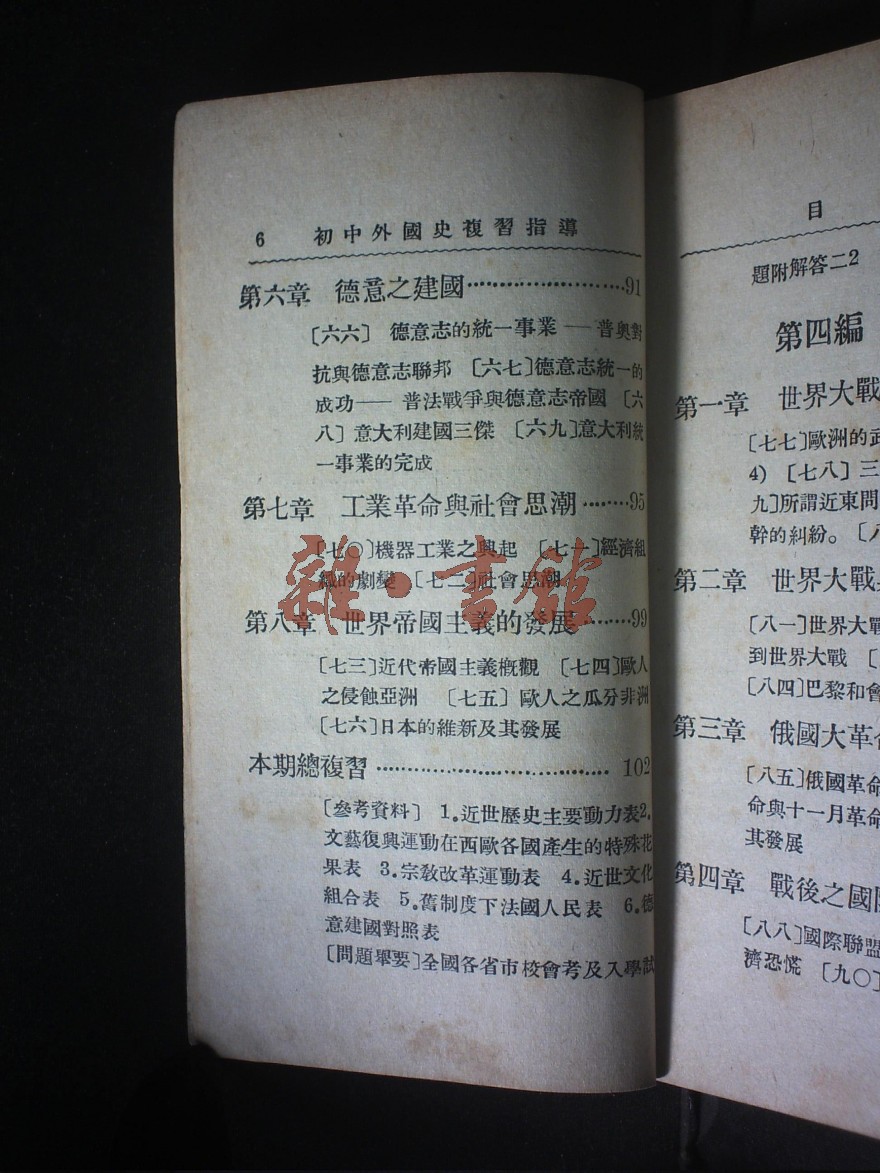 6 初中外國史複習指導
第六章 德意之建國························91
〔六六〕 德意志的統一事業 —— 普奧對
抗與德意志聯邦 〔六七〕德意志統一的
成功—— 普法戰爭與德意志帝國 〔六
八〕意大利建國三傑 〔六九〕意大利統
一事業的完成
第七章 工業革命與社會思潮········95
〔七〇〕機器工業之興起 〔七一〕經濟組
織的劇變 〔七二〕社會思潮
第八章 世界帝國主義的發展········99
〔七三〕近代帝國主義槪觀 〔七四〕歐人
之侵蝕亞洲 〔七五〕歐人之瓜分非洲
〔七六〕日本的維新及其發展
本期總複習································ 102
〔參考資料〕 1.近世歷史主要動力表2.
文藝復興運動在西歐各國產生的特殊花
果表 3.宗敎改革運動表 4.近世文化
組合表 5.舊制度下法國人民表 6.德
意建國對照表
〔問題舉要〕全國各省市校會考及入學試
雜·書館
目
題附解答二2
第四編
第一章 世界大戰
〔七七〕歐洲的武
4) 〔七八〕三
九〕所謂近東問
幹的糾紛。〔八
第二章 世界大戰
〔八一〕世界大戰
到世界大戰 〔
〔八四〕巴黎和會
第三章 俄國大革命
〔八五〕俄國革命
命與十一月革命
其發展
第四章 戰後之國際
〔八八〕國際聯盟
濟恐慌 〔九〇〕